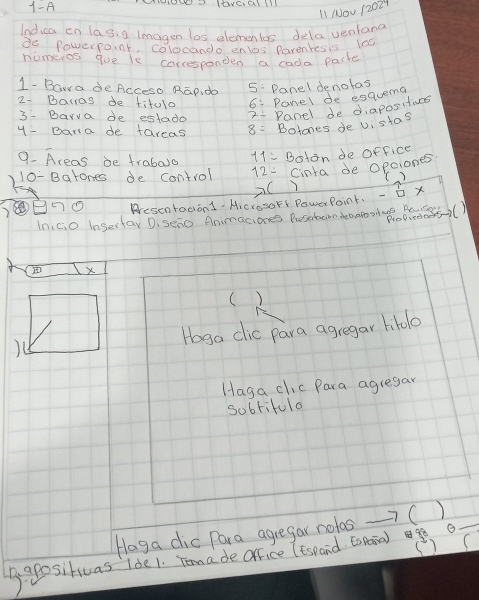 1-A Parcial III
11/Nov/2024
Indica en la sig Imagen los elementos de la ventana
de Powerpoint, colocando en los Parentesis los
números que le corresponden a cada parte
1- Barra de Acceso Rápido
2- Barras de titulo
3- Barra de estado
4- Barra de tareas
5- Panel de notas
6- Panel de esquema
7- Panel de diapositivas
8- Botones de vistas
9- Áreas de trabajo
10- Botones de control
11- Botón de Office
12- Cinta de Opciones
( ) ( )
Presentación1 - Microsoft PowerPoint. - □ x
Inicio Insertar Diseño Animaciones Presentacion de diapositivas Revisar
( )
x
( )
Haga clic para agregar titulo
Haga clic Para agregar
subtitulo
Haga clic Para agregar notas → ( )
Diapositivas 1 de 1. Tema de Office (Español España)
( ) (